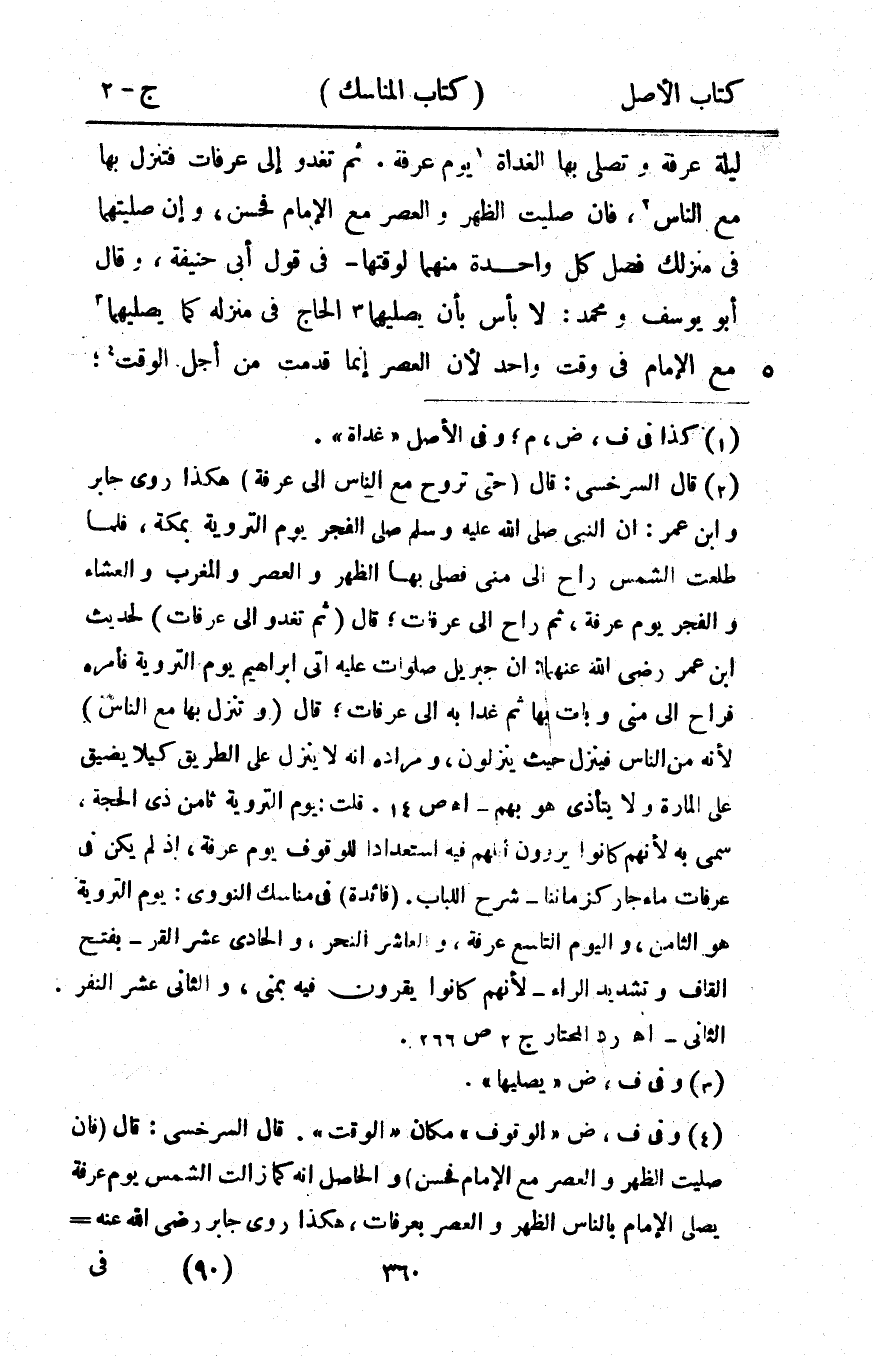 كتاب الأصل ( كتاب المناسك ) ج - ٢
ليلة عرفة و تصلى بها الغداة ١ يوم عرفة . ثم تغدو إلى عرفات فتنزل بها
مع الناس ٢ ، فان صليت الظهر و العصر مع الإمام فحسن ، و إن صليتها
فى منزلك فصل كل واحدة منهما لوقتها - فى قول أبى حنيفة ، و قال
أبو يوسف و محمد : لا بأس بأن يصليهما ٣ الحاج فى منزله كما يصليهما ٣
٥ مع الإمام فى وقت واحد لأن العصر إنما قدمت من أجل الوقت ٤ ؛
(١) كذا فى ف ، ض ، م ؛ و فى الأصل « غداة » .
(٢) قال السرخسى : قال ( حتى تروح مع الناس الى عرفة ) هكذا روى جابر
و ابن عمر : ان النبى صلى الله عليه و سلم صلى الفجر يوم التروية بمكة ، فلما
طلعت الشمس راح الى منى فصلى بها الظهر و العصر و المغرب و العشاء
و الفجر يوم عرفة ، ثم راح الى عرفات ؛ قال ( ثم تغدو الى عرفات ) لحديث
ابن عمر رضى الله عنهما : ان جبريل صلوات عليه اتى ابراهيم يوم التروية فأمره
فراح الى منى و بات بها ثم غدا به الى عرفات ؛ قال ( و تنزل بها مع الناس )
لأنه من الناس فينزل حيث ينزلون ، و مراده انه لا ينزل على الطريق كيلا يضيق
على المارة و لا يتأذى هو بهم - اه ص ١٤ . قلت : يوم التروية ثامن ذى الحجة ،
سمى به لأنهم كانوا يروون إبلهم فيه استعدادا للوقوف يوم عرفة ، إذ لم يكن فى
عرفات ماء جار كزماننا - شرح اللباب . ( فائدة ) فى مناسك النووى : يوم التروية
هو الثامن ، و اليوم التاسع عرفة ، و العاشر النحر ، و الحادى عشر القر - بفتح
القاف و تشديد الراء - لأنهم كانوا يقرون فيه بمنى ، و الثانى عشر النفر .
الثانى - اه رد المحتار ج ٢ ص ٢٦٦ .
(٣) و فى ف ، ض « يصليها » .
(٤) و فى ف ، ض « الوقوف » مكان « الوقت » . قال السرخسى : قال ( فان
صليت الظهر و العصر مع الإمام فحسن ) و الحاصل انه كما زالت الشمس يوم عرفة
يصلى الإمام بالناس الظهر و العصر بعرفات ، هكذا روى جابر رضى الله عنه =
٣٦٠ (٩٠) فى